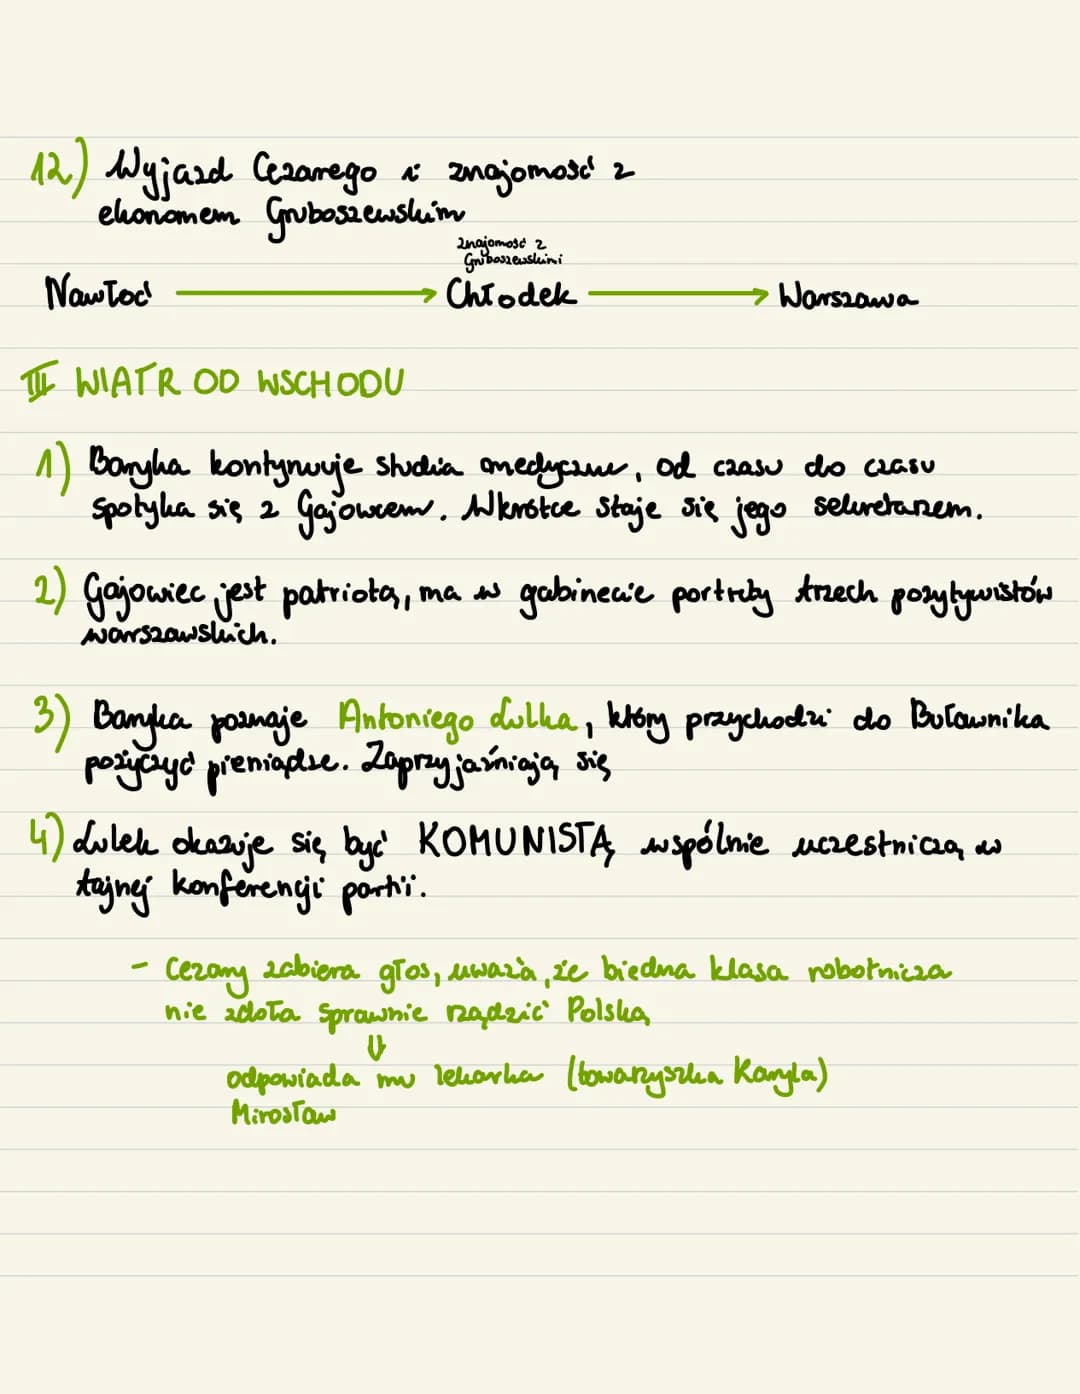 12.) Wyjazd Cezarego i znajomość z
ekonomem Gruboszewskim
znajomość z
Gruboszewskimi
Nawłoć → Chłodek → Warszawa
III WIATR OD WSCHODU
1) Baryka kontynuuje studia medyczne, od czasu do czasu
spotyka się z Gajowcem. Wkrótce staje się jego sekretarzem.
2) Gajowiec jest patriotą, ma w gabinecie portrety trzech pozytywistów
warszawskich.
3) Baryka poznaje Antoniego Lulka, który przychodzi do Buławnika
pożyczyć pieniądze. Zaprzyjaźniają się
4) Lulek okazuje się być KOMUNISTĄ, wspólnie uczestniczą w
tajnej konferencji partii.
- Cezary zabiera głos, uważa, że biedna klasa robotnicza
nie zdoła sprawnie rządzić Polską
⇓
odpowiada mu lekarka (towarzyszka Karyla)
Mirosław